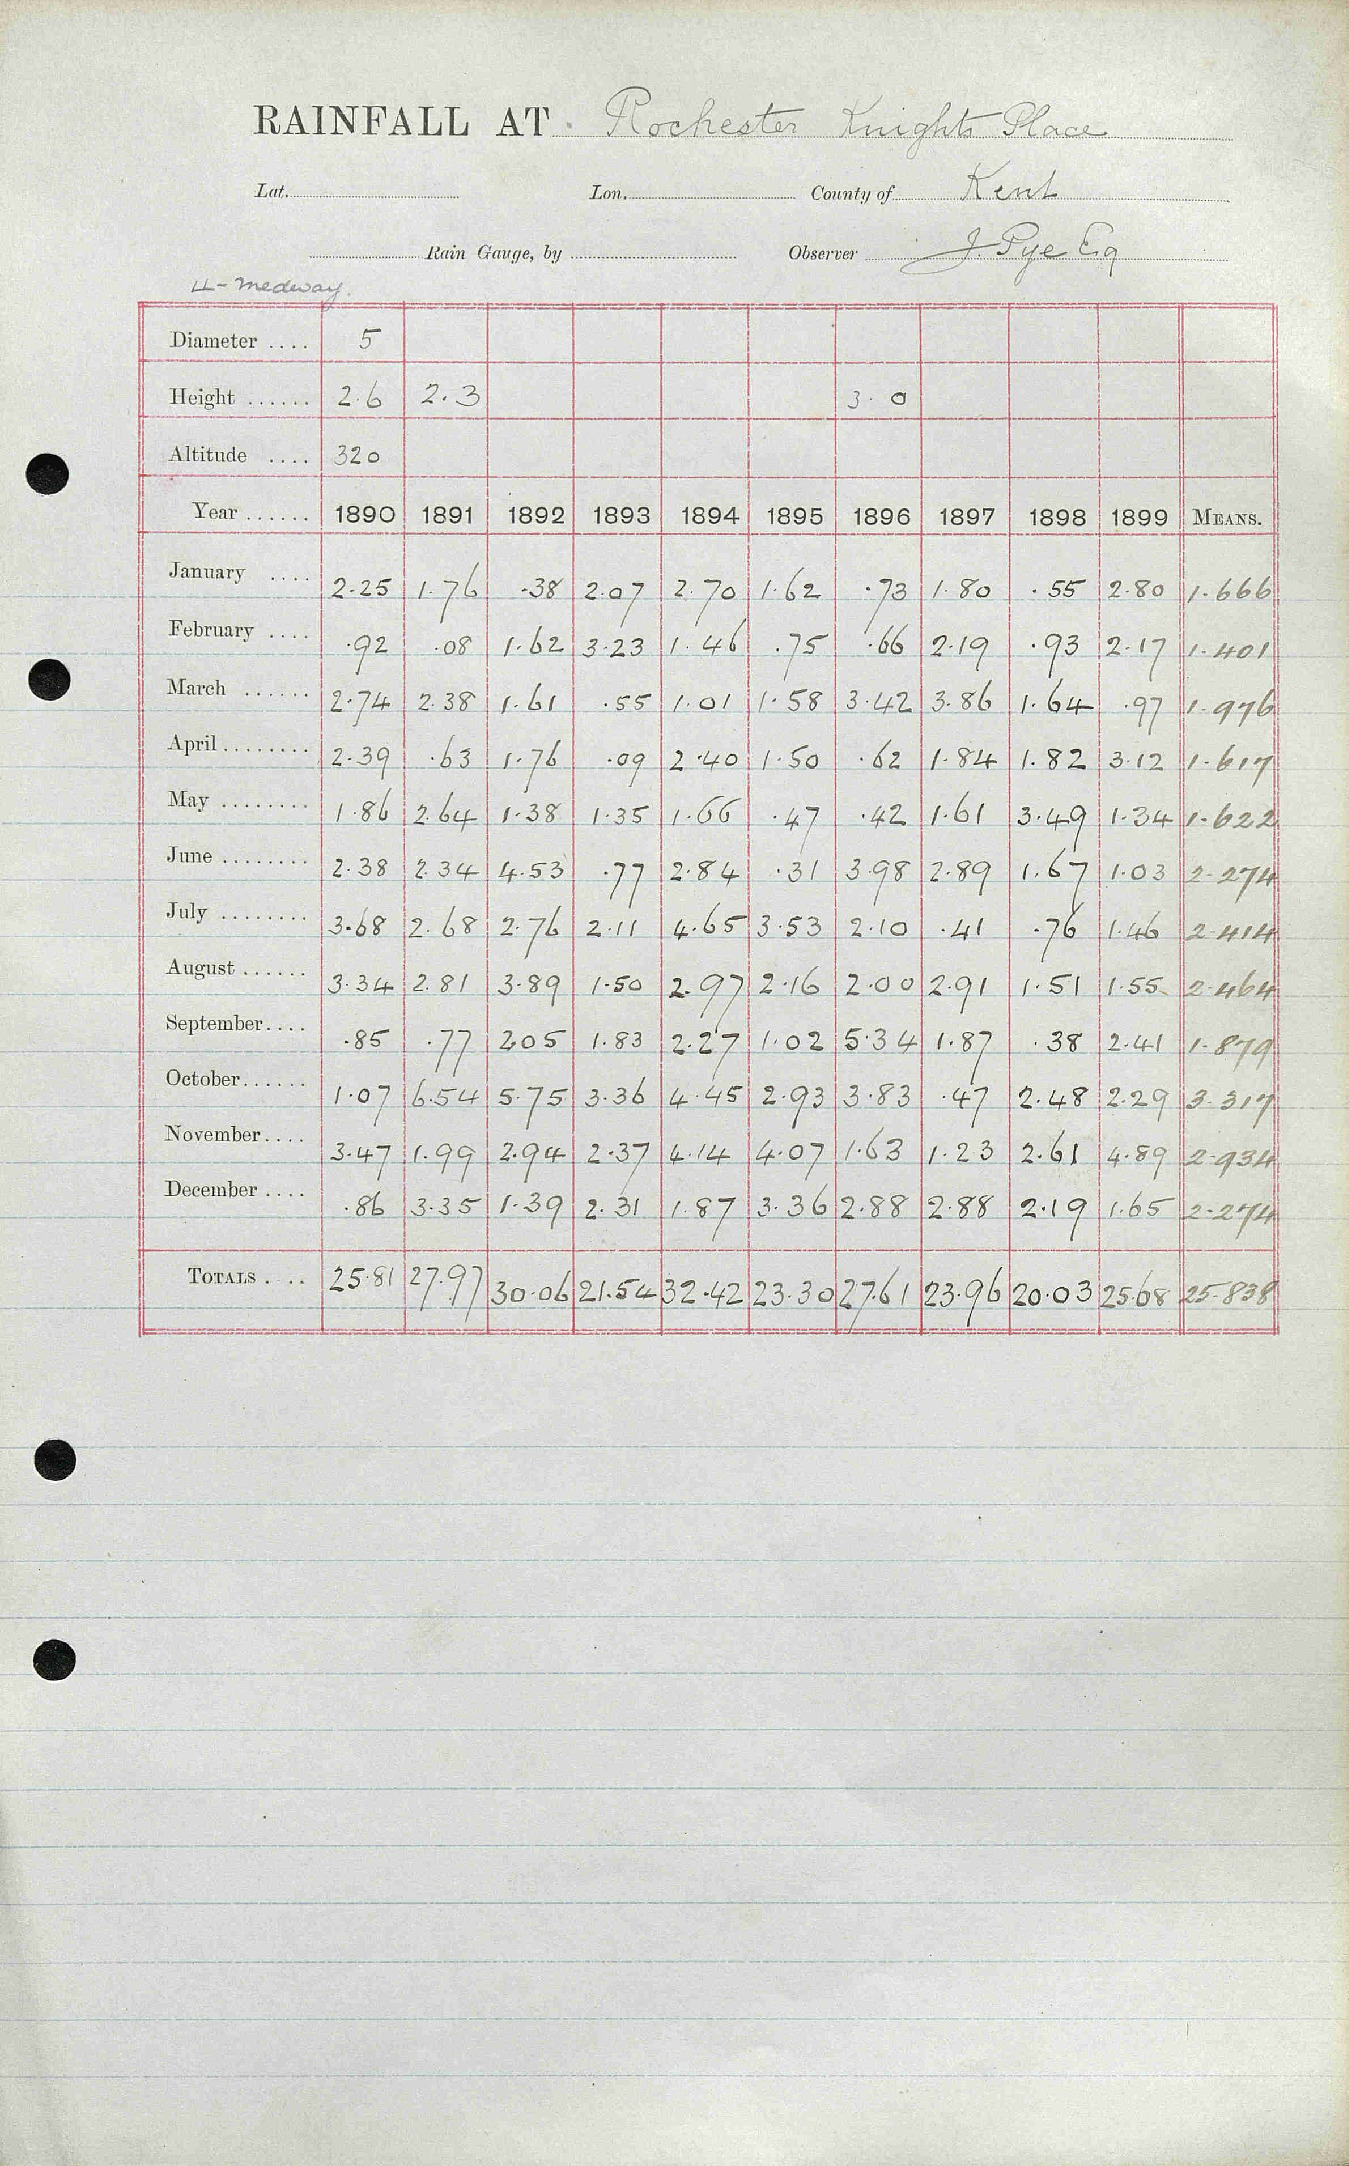 RAINFALL AT Rochester Knights Place
Lat. Lon. County of Kent
Rain Gauge, by Observer J. Pye Esq
4-Medway.
Diameter .... 5
Height ...... 2.6 2.3 3.0
Altitude .... 320
Year ...... 1890 1891 1892 1893 1894 1895 1896 1897 1898 1899 MEANS.
January .... 2.25 1.76 .38 2.07 2.70 1.62 .73 1.80 .55 2.80 1.666
February .... .92 .08 1.62 3.23 1.46 .75 .66 2.19 .93 2.17 1.401
March ...... 2.74 2.38 1.61 .55 1.01 1.58 3.42 3.86 1.64 .97 1.976
April ........ 2.39 .63 1.76 .09 2.40 1.50 .62 1.84 1.82 3.12 1.617
May ........ 1.86 2.64 1.38 1.35 1.66 .47 .42 1.61 3.49 1.34 1.622
June ........ 2.38 2.34 4.53 .77 2.84 .31 3.98 2.89 1.67 1.03 2.274
July ........ 3.68 2.68 2.76 2.11 4.65 3.53 2.10 .41 .76 1.46 2.414
August ...... 3.34 2.81 3.89 1.50 2.97 2.16 2.00 2.91 1.51 1.55 2.464
September.... .85 .77 2.05 1.83 2.27 1.02 5.34 1.87 .38 2.41 1.879
October ...... 1.07 6.54 5.75 3.36 4.45 2.93 3.83 .47 2.48 2.29 3.317
November.... 3.47 1.99 2.94 2.37 4.14 4.07 1.63 1.23 2.61 4.89 2.934
December .... .86 3.35 1.39 2.31 1.87 3.36 2.88 2.88 2.19 1.65 2.274
TOTALS .... 25.81 27.97 30.06 21.54 32.42 23.30 27.61 23.96 20.03 25.68 25.838